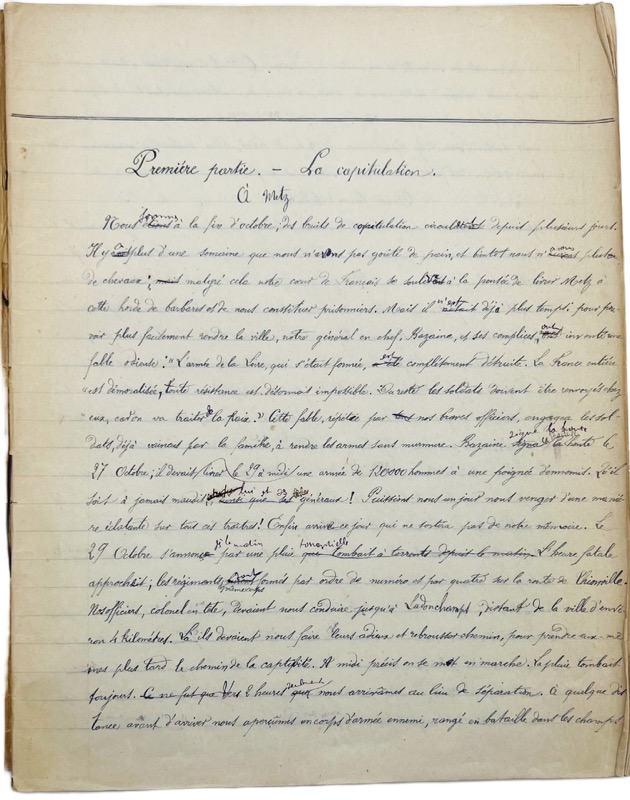 Première partie. - La capitulation.
À Metz
Nous sommes à la fin d'octobre; des bruits de capitulation circulent depuis plusieurs jours.
Il y a plus d'une semaine que nous n'avons pas goûté de pain, et bientôt nous n'avons plus non
de chevaux; mais malgré cela notre cœur de Français se soulève à la pensée de livrer Metz à
cette horde de barbares et de nous constituer prisonniers. Mais il n'est déjà plus temps. pour pou
voir plus facilement rendre la ville, notre général en chef, Bazaine, et ses complices, ont inventé une
fable odieuse: "L'armée de la Loire, qui s'était formée, est complètement détruite. La France entière
"est démoralisée, toute résistance est désormais impossible. Du reste les soldats doivent être renvoyés chez
eux, car on va traiter de la paix." Cette fable, répétée par tous nos braves officiers, engagea les sol-
dats, déjà vaincus par la famine, à rendre les armes sans murmure. Bazaine signa la honte le
27 Octobre; il devait livrer le 29 à midi une armée de 120000 hommes à une poignée d'ennemis. Qu'il
soit à jamais maudit, lui et ses généraux! Puissions nous un jour nous venger d'une maniè
re éclatante sur tous ces traîtres! Enfin arrive ce jour qui ne sortira pas de notre mémoire. Le
29 Octobre s'annonça dès le matin par une pluie torrentielle qui tombait à torrents depuis le matin. L'heure fatale
approchait; les régiments sont formés par ordre de numéro et par quatre sur la route de Thionville.
Nos officiers, colonel en tête, devaient nous conduire jusqu'à Ladonchamps, distant de la ville d'envi-
ron 4 kilomètres. Là ils devaient nous faire leurs adieux et rebrousser chemin, pour prendre eux-mê-
mes plus tard le chemin de la captivité. A midi précis on se met en marche. La pluie tombait
toujours. Ce ne fut que vers 2 heures seulement que nous arrivâmes au lieu de séparation. A quelque dis
tance avant d'arriver nous aperçûmes un corps d'armée ennemi, rangé en bataille dans les champs